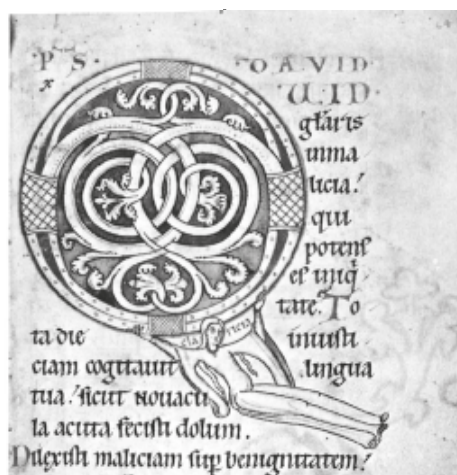 P S · DAVID
U·ID·
gła̅ris
inma
licia!
qui
potens
es iniq̅
tate. To
cla ricia
ta die iniusti
ciam cogitauit lingua
tua! sicut nouacu
la acuta fecisti dolum.
Dilexisti maliciam sup̅ benignitatem!